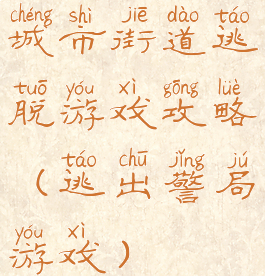 chéng shì jiē dào táo
城市街道逃
tuō yóu xì gōng lüè
脱游戏攻略
táo chū jǐng jú
（逃出警局
yóu xì
游戏）